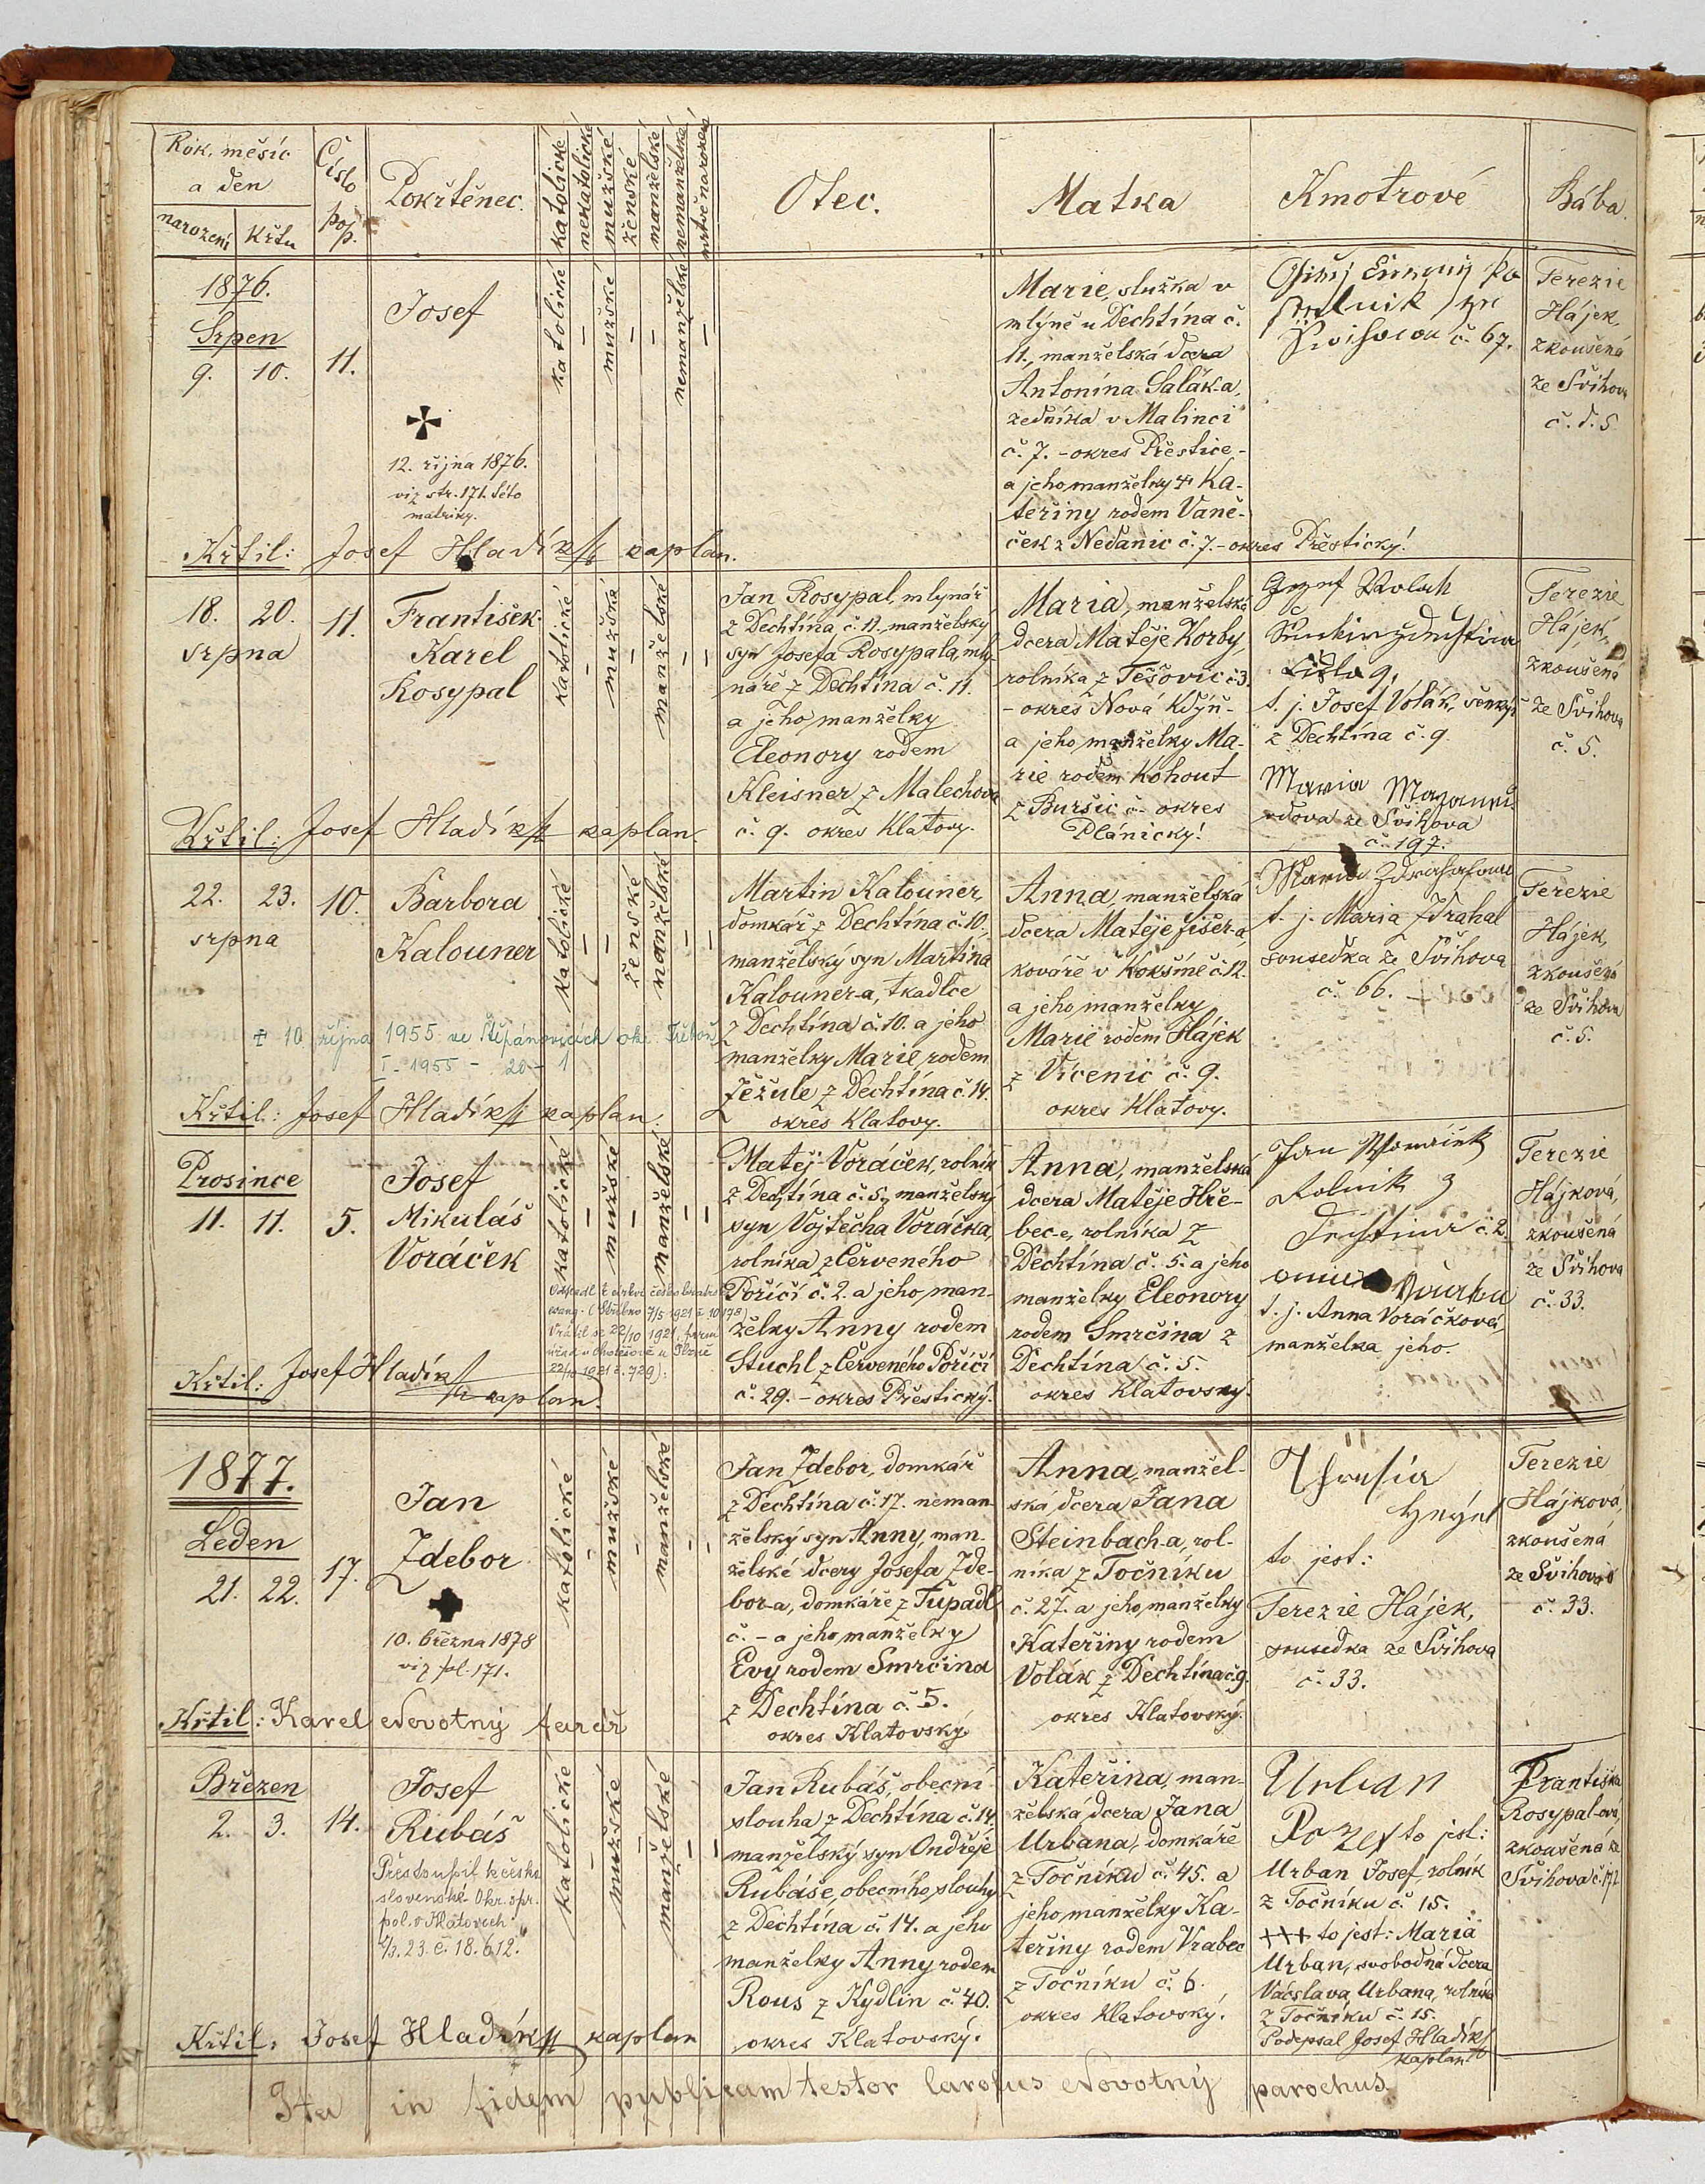 Rok, měsíc
a den
narození
křtu
Číslo
pop.
Pokřtěnec.
katolické
nekatolické
mužské
ženské
manželské
nemanželské
mrtvě narozené
Otec.
Matka
Kmotrové
Bába.
1876.
Srpen
9. 10. 11.
Josef
12. října 1876.
viz str. 171. této
matriky.
katolické
mužské
nemanželské
Marie, služka v
mlýně u Dechtína č.
11., manželská dcera
Antonína Salák-a,
zedníka v Malinci
č. 7. - okres Přeštice -
a jeho manželky Ka-
teřiny rodem Vane-
ček z Nedanic č. 7. - okres Přestický!
č. 67.
Terezie
Hájek,
zkoušená
ze Švihova
č. d. 5
Křtil: Josef Hladík kaplan.
18. 20. 11.
srpna
František
Karel
Rosypal
katolické
mužské
manželské
Jan Rosypal, mlynář
z Dechtína č. 11. manželský
syn Josefa Rosypala, mly-
náře z Dechtína č. 11.
a jeho manželky
Eleonory rodem
Kleisner z Malechova
č. 9. okres Klatovy.
Maria, manželská
dcera Matěje Korby,
rolníka z Těšovic č. 3.
- okres Nová Kdýň -
a jeho manželky Ma-
rie rodem Kohout
z Buršic č. - okres
Plánický!
číslo 9.
t. j. Josef Volák, šenkýř
z Dechtína č. 9.
Maria
vdova ze Švihova
č. 197.
Terezie
Hájek,
zkoušená
ze Švihova
č. 5.
Křtil: Josef Hladík kaplan
22. 23. 10.
srpna
Barbora
Kalouner
katolické
ženské
manželské
+ 10. října 1955 ve Štěpánovicích okr. Třeboň
I - 1955 - 20 - 1
Martin Kalouner,
domkář z Dechtína č. 10.,
manželský syn Martina
Kalouner-a, tkadlce
z Dechtína č. 10. a jeho
manželky Marie rodem
Ježule z Dechtína č. 14.
okres Klatovy.
Anna, manželská
dcera Matěje Fišer-a,
kováře v Kokšíně č. 12.
a jeho manželky
Marie rodem Hájek
z Vícenic č. 9.
okres Klatovy.
Maria
t. j. Maria Zdrahal
sousedka ze Švihova
č. 66.
Terezie
Hájek,
zkoušená
ze Švihova
č. 5.
Křtil: Josef Hladík kaplan.
Prosince
11. 11. 5.
Josef
Mikuláš
Voráček
katolické
mužské
manželské
Matěj Voráček, rolník
z Dechtína č. 5., manželský
syn Vojtěcha Voráčka,
rolníka z Červeného
Poříčí č. 2. a jeho man-
želky Anny rodem
Stuchl z Červeného Poříčí
č. 29. - okres Přestický.
Anna, manželská
dcera Matěje Hře-
bec-e, rolníka z
Dechtína č. 5. a jeho
manželky Eleonory
rodem Smrčina z
Dechtína č. 5.
okres Klatovský.
Jan
Rolník z
č. 2.
t. j. Anna Voráčková,
manželka jeho.
Terezie
Hájková,
zkoušená
ze Švihova
č. 33.
Křtil: Josef Hladík
kaplan.
1877.
Leden
21. 22. 17.
Jan
Zdebor
10. března 1878
viz fol. 171.
katolické
mužské
manželské
Jan Zdebor, domkář
z Dechtína č. 17. neman-
želský syn Anny, man-
želské dcery Josefa Zde-
bor-a, domkáře z Tupadl
č. - a jeho manželky
Evy rodem Smrčina
z Dechtína č. 5.
okres Klatovský.
Anna, manžel-
ská dcera Jana
Steinbach-a, rol-
níka z Točníku
č. 27. a jeho manželky
Kateřiny rodem
Volák z Dechtína č. 9.
okres Klatovský.
to jest:
Terezie Hájek,
sousedka ze Švihova
č. 33.
Terezie
Hájková,
zkoušená
ze Švihova
č. 33.
Křtil: Karel Novotný farář
Březen
2. 3. 14.
Josef
Rubáš
Přestoupil k česko
slovenské Okr. spr.
pol. v Klatovech
katolické
mužské
manželské
Jan Rubáš, obecní
slouha z Dechtína č. 14.
manželský syn Ondřeje
Rubáše, obecního slouhy
z Dechtína č. 14. a jeho
manželky Anny rodem
Rous z Kydlin č. 40.
okres Klatovský.
Kateřina, man-
želská dcera Jana
Urbana, domkáře
z Točníku č. 45. a
jeho manželky Ka-
teřiny rodem Vrabec
z Točníku č. 6.
okres Klatovský.
Urban
Jozef to jest:
Urban Josef, rolník
z Točníku č. 15.
+++ to jest: Maria
Urban, svobodná dcera
Václava Urbana, rolníka
z Točníku č. 15.
Podepsal Josef Hladík
kaplan
Františka
Rosypal-ová,
zkoušená ze
Švihova č. 192
Křtil: Josef Hladík kaplan
Ita in fidem publicam testor Carolus Novotný parochus.